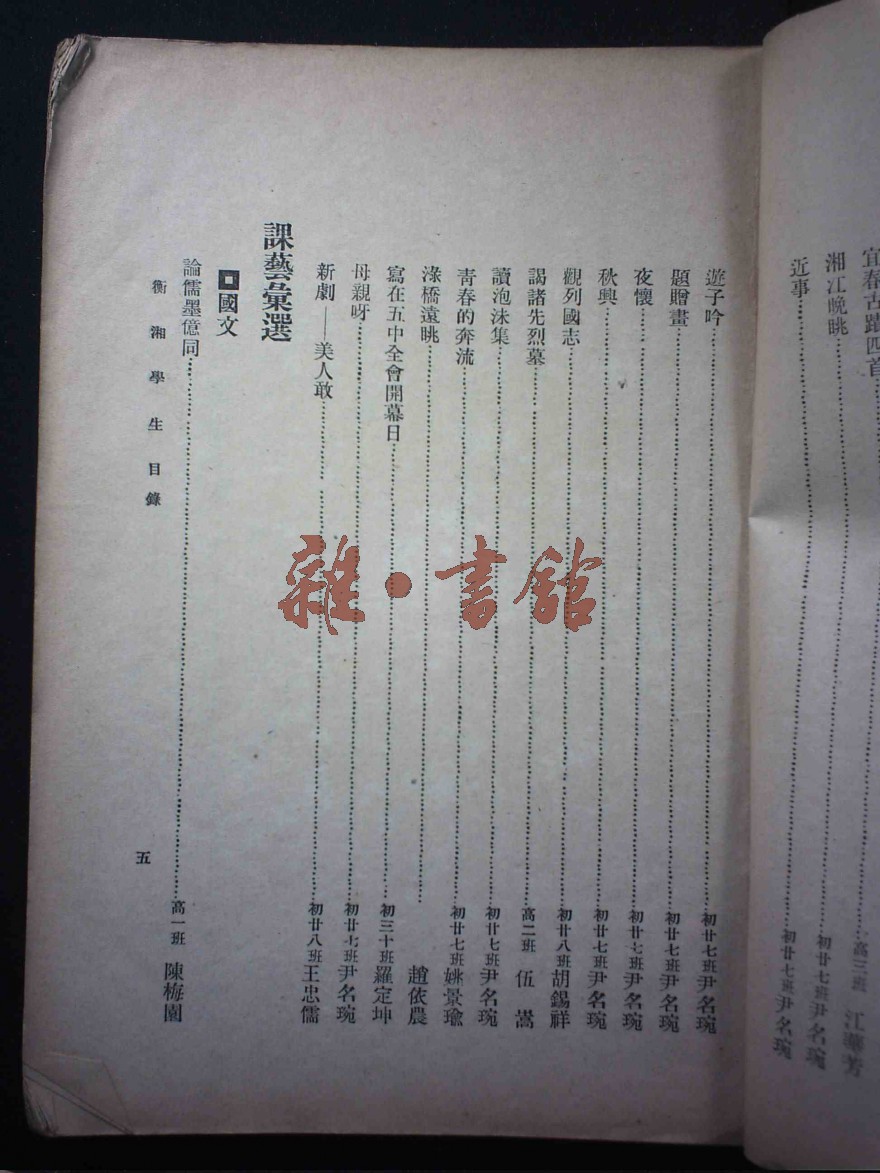 宜春古蹟四首……高三班 江華芳
湘江晚眺……初廿七班尹名琬
近事……初廿七班尹名琬
遊子吟……初廿七班尹名琬
題贈畫……初廿七班尹名琬
夜懷……初廿七班尹名琬
秋興……初廿七班尹名琬
觀列國志……初廿八班胡錫祥
謁諸先烈墓……高二班 伍嵩
讀泡沫集……初廿七班尹名琬
青春的奔流……初廿七班姚景瑜
淥橋遠眺……趙依農
寫在五中全會開幕日……初三十班羅定坤
母親呀……初廿七班尹名琬
新劇——美人敢……初廿八班王忠儒
課藝彙選
國文
論儒墨億同……高一班 陳梅園
衡湘學生目錄
五
雜·書館